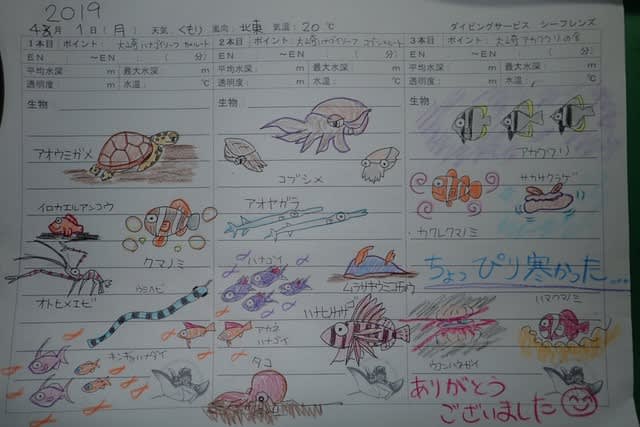 2019
4月 1日(月) 天気 くもり 風向: 北東 気温: 20℃
ダイビングサービス シーフレンズ
1本目 ポイント: 大崎ハナゴイリーフ
EN : ~EN : ( 分)
平均水深: m 最大水深: m
透明度: m 水温: ℃
生物:
アオウミガメ
イロカエルアンコウ
クマノミ
オトヒメエビ
ウミヘビ
キンギョハナダイ
2本目 ポイント: 大崎ハナゴイリーフ
EN : ~EN : ( 分)
平均水深: m 最大水深: m
透明度: m 水温: ℃
生物:
コブシメ
アオヤガラ
ハナゴイ
ムラサキウミコチョウ
ハナミノカサゴ
アカネハナゴイ
タコ
3本目 ポイント: 大崎アカククリの宮
EN : ~EN : ( 分)
平均水深: m 最大水深: m
透明度: m 水温: ℃
生物:
アカククリ
サカサクラゲ
カクレクマノミ
ちょっぴり寒かった...
ハマクマノミ
ウコンハネガイ
ありがとう
ございました